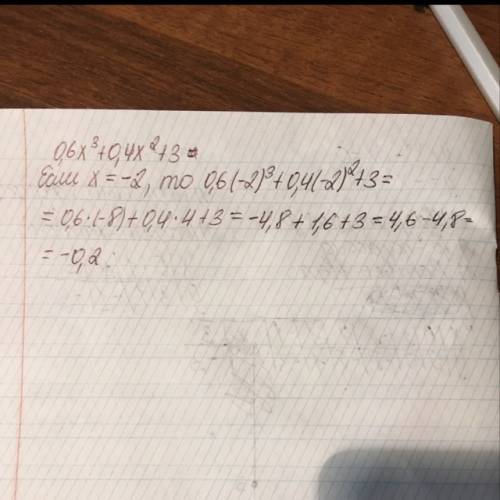 0,6x³+0,4x²+3
Если x = -2, то 0,6(-2)³+0,4(-2)²+3=
= 0,6·(-8)+0,4·4+3 = -4,8+1,6+3 = 4,6-4,8=
= -0,2.